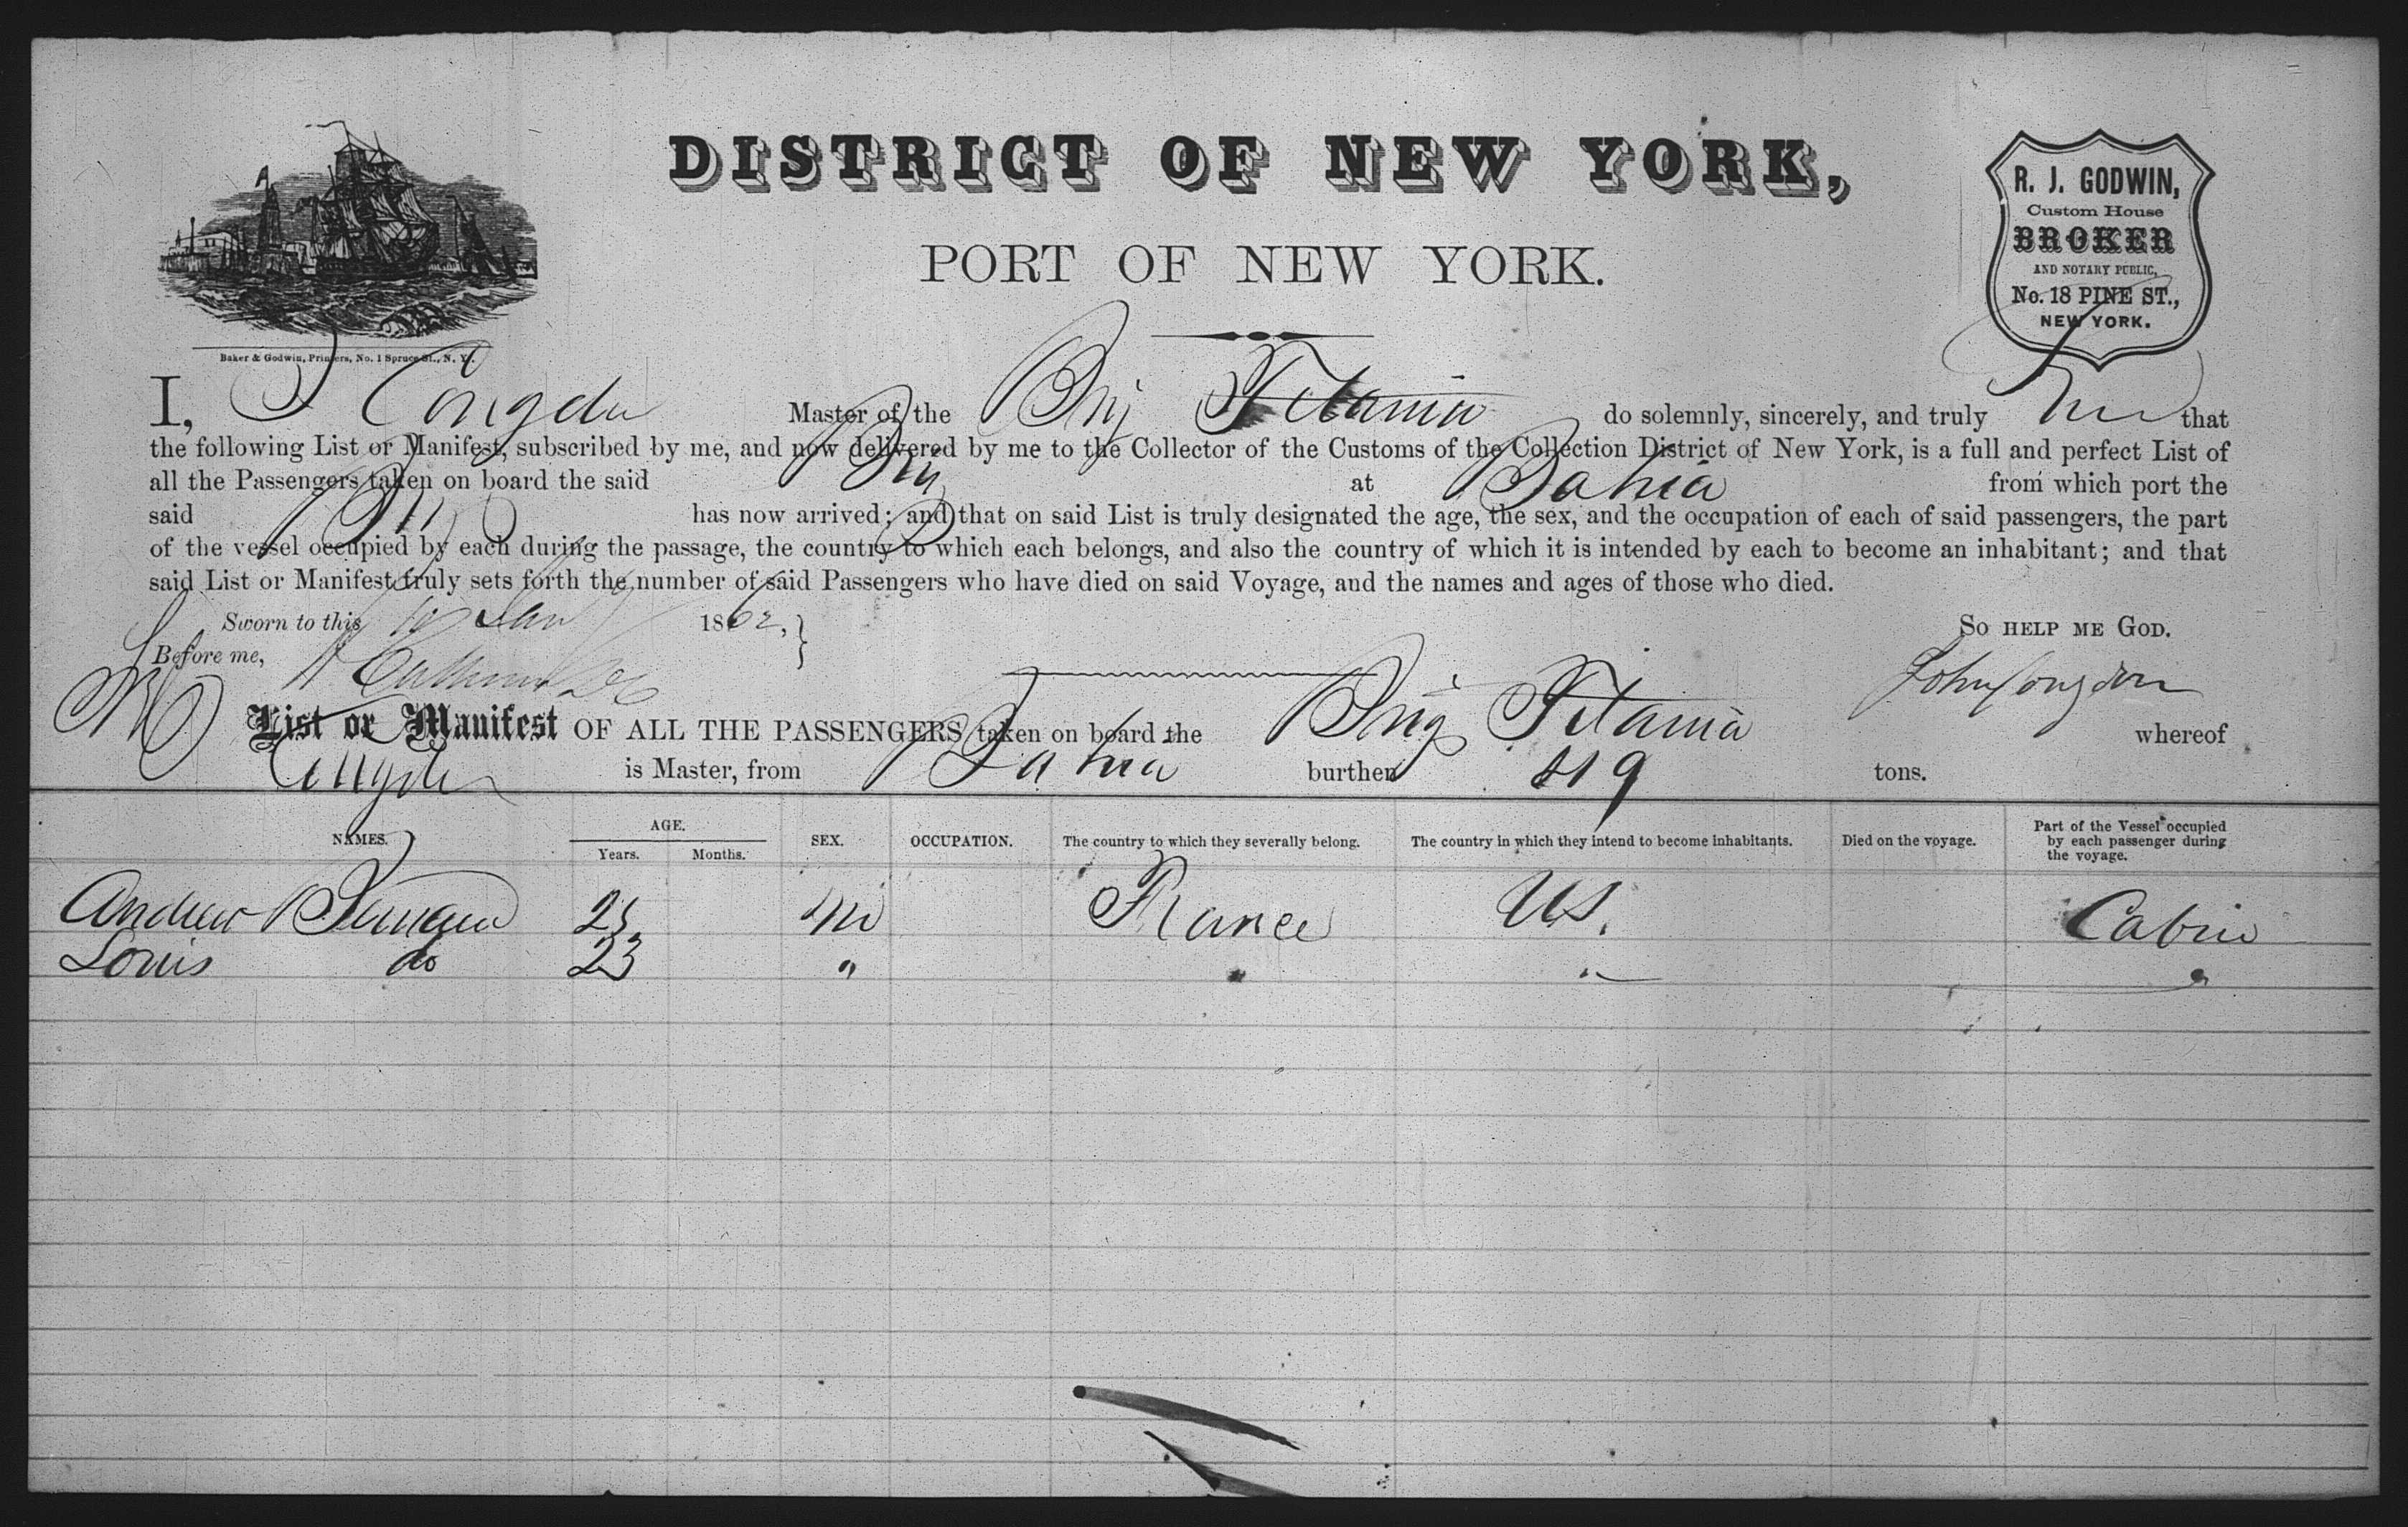 DISTRICT OF NEW YORK,
PORT OF NEW YORK.
R. J. GODWIN,
Custom House
BROKER
AND NOTARY PUBLIC,
No. 18 PINE ST.,
NEW YORK.
Baker & Godwin, Printers, No. 1 Spruce St., N. Y.
I, J Congdon Master of the Brig Titania do solemnly, sincerely, and truly that
the following List or Manifest, subscribed by me, and now delivered by me to the Collector of the Customs of the Collection District of New York, is a full and perfect List of
all the Passengers taken on board the said Brig at Bahia from which port the
said Brig has now arrived; and that on said List is truly designated the age, the sex, and the occupation of each of said passengers, the part
of the vessel occupied by each during the passage, the country to which each belongs, and also the country of which it is intended by each to become an inhabitant; and that
said List or Manifest truly sets forth the number of said Passengers who have died on said Voyage, and the names and ages of those who died.
Sworn to this Jan 1862,
So help me God.
Before me,
John Congdon
List or Manifest OF ALL THE PASSENGERS taken on board the Brig Titania whereof
Congdon is Master, from Bahia burthen 419 tons.
NAMES. AGE. Years. Months. SEX. OCCUPATION. The country to which they severally belong. The country in which they intend to become inhabitants. Died on the voyage. Part of the Vessel occupied by each passenger during the voyage.
Andrew 25 M France US. Cabin
Louis do 23 " " " "